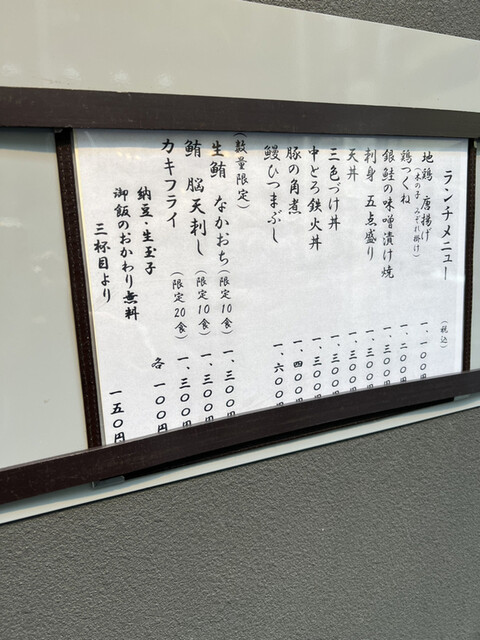 ランチメニュー (税込)
地鶏 唐揚げ 一、一〇〇円
(木の子 みぞれ掛け)
鶏つくね 一、二〇〇円
銀鮭の味噌漬け焼 一、三〇〇
刺身 五点盛り 一、三〇〇
天丼 一、三〇〇
三色づけ丼 一、三〇〇
中とろ鉄火丼 一、三〇〇
豚の角煮 一、四〇〇
鰻ひつまぶし 一、六〇〇
(数量限定)
生鮪 なかおち(限定10食) 一、三〇〇
鮪 脳天刺し(限定10食) 一、三〇〇
カキフライ(限定20食) 一、三〇〇円
納豆・生玉子 各 一〇〇円
御飯のおかわり無料
三杯目より 一五〇円